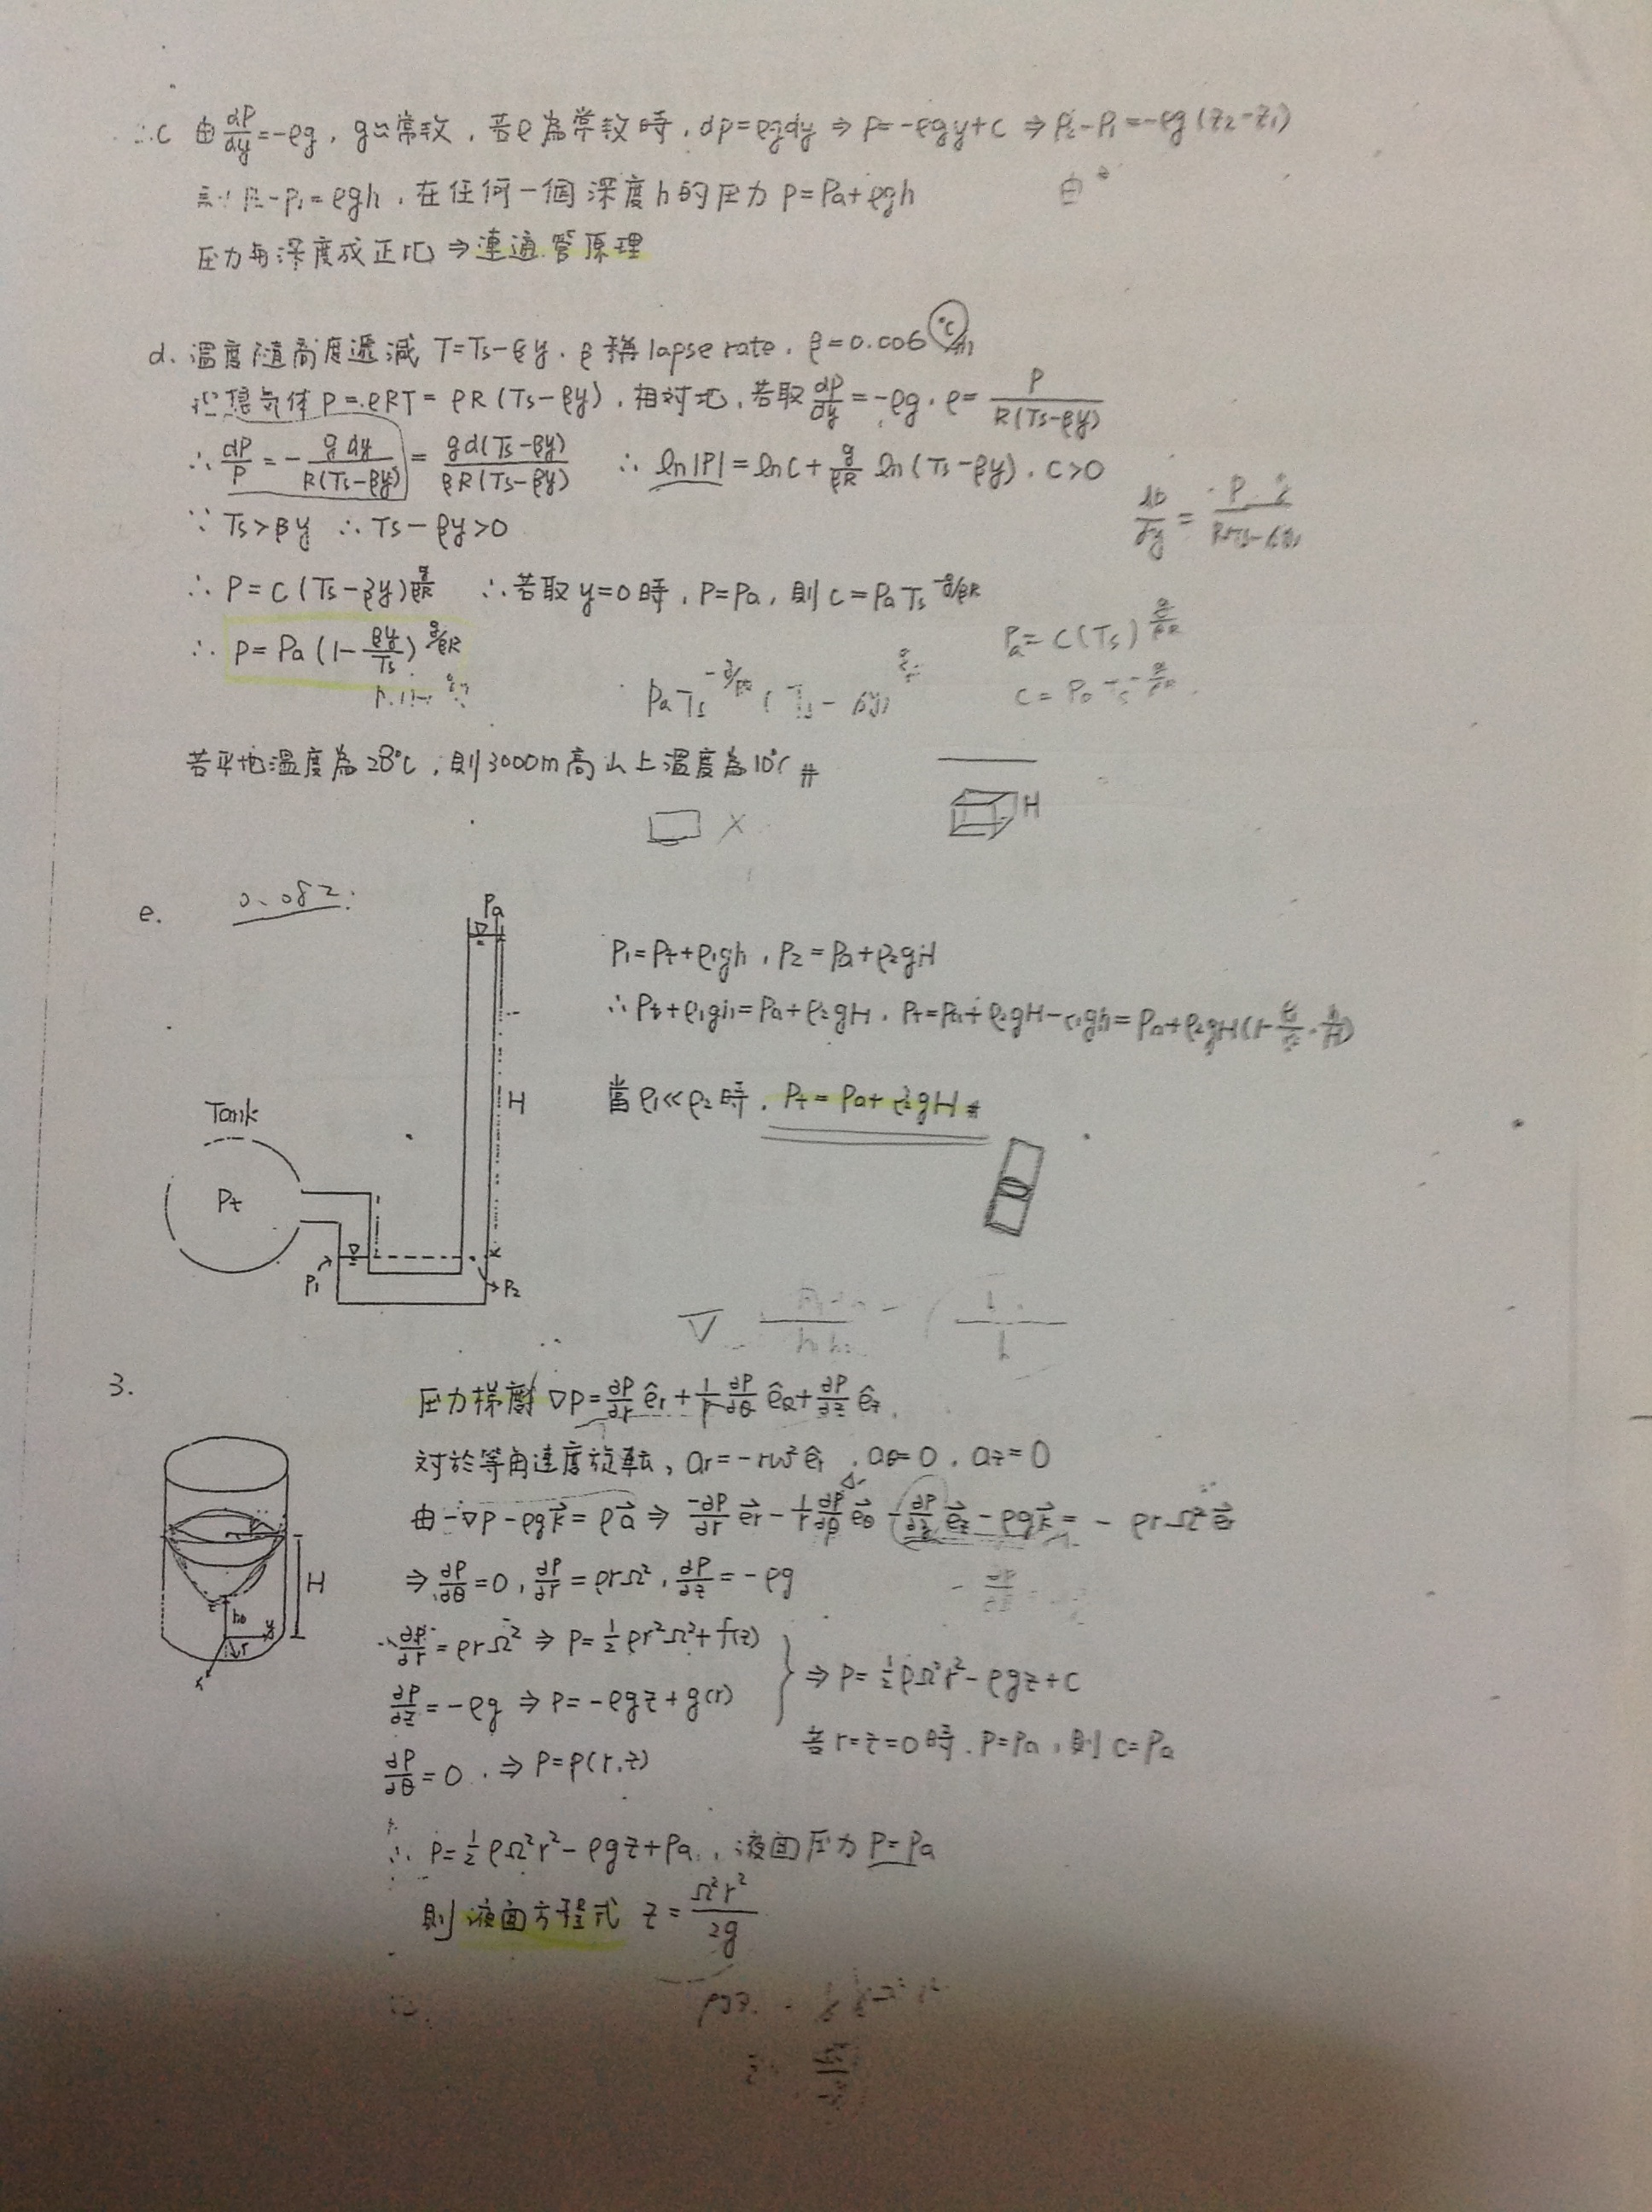 c 由 dP/dy = -ρg, g≈常數, 若ρ為常數時, dp=ρgdy ⇒ P=-ρgy+C ⇒ P₂-P₁=-ρg(z₂-z₁)
P₂-P₁=ρgh, 在任何一個深度h的压力 P=Pa+ρgh
由
压力與深度成正比 ⇒ 連通管原理
d. 温度隨高度遞減 T=Ts-βy. β稱 lapse rate. β=0.006 °C/m
理想気体 P=ρRT=ρR(Ts-βy), 相対地, 若取 dP/dy=-ρg. ρ=P/R(Ts-βy)
∴ dP/P = -g dy/R(Ts-βy) = g d(Ts-βy)/βR(Ts-βy) ∴ ln|P|=lnC+ g/βR ln(Ts-βy). C>0
∵ Ts>βy ∴ Ts-βy>0
∴ P=C(Ts-βy)^g/βR ∴若取y=0時, P=Pa, 則 C=PaTs^-g/βR
∴ P=Pa(1-βy/Ts)^g/βR
Pa=C(Ts)^g/βR
PaTs^-g/βR (Ts-βy)
C=PaTs^-g/βR
若平地温度為28°C, 則3000m高山上温度為10°C #
H
e. 0.082
Pa
P₁=Pt+ρ₁gh, P₂=Pa+ρ₂gH
∴ Pt+ρ₁gh=Pa+ρ₂gH. Pt=Pa+ρ₂gH-ρ₁gh=Pa+ρ₂gH(1-ρ₁/ρ₂·h/H)
H
當ρ₁≪ρ₂時, Pt=Pa+ρ₂gH #
Tank
Pt
P₁
P₂
3.
压力梯度 ∇P=∂P/∂r êr+1/r ∂P/∂θ êθ+∂P/∂z êz
対於等角速度旋転, ar=-rω² êr, aθ=0, az=0
由 -∇P-ρgk⃗=ρa⃗ ⇒ -∂P/∂r e⃗r - 1/r ∂P/∂θ e⃗θ - ∂P/∂z e⃗z - ρgk⃗ = -ρrΩ²e⃗r
⇒ ∂P/∂θ=0, ∂P/∂r=ρrΩ², ∂P/∂z=-ρg
H
h₀
y
r
x
∂P/∂r=ρrΩ² ⇒ P=½ρr²Ω²+f(z)
∂P/∂z=-ρg ⇒ P=-ρgz+g(r)
⇒ P=½ρΩ²r²-ρgz+C
若r=z=0時, P=Pa, 則 C=Pa
∂P/∂θ=0. ⇒ P=P(r,z)
∴ P=½ρΩ²r²-ρgz+Pa, 液面压力 P=Pa
則液面方程式 z=Ω²r²/2g
ρgz